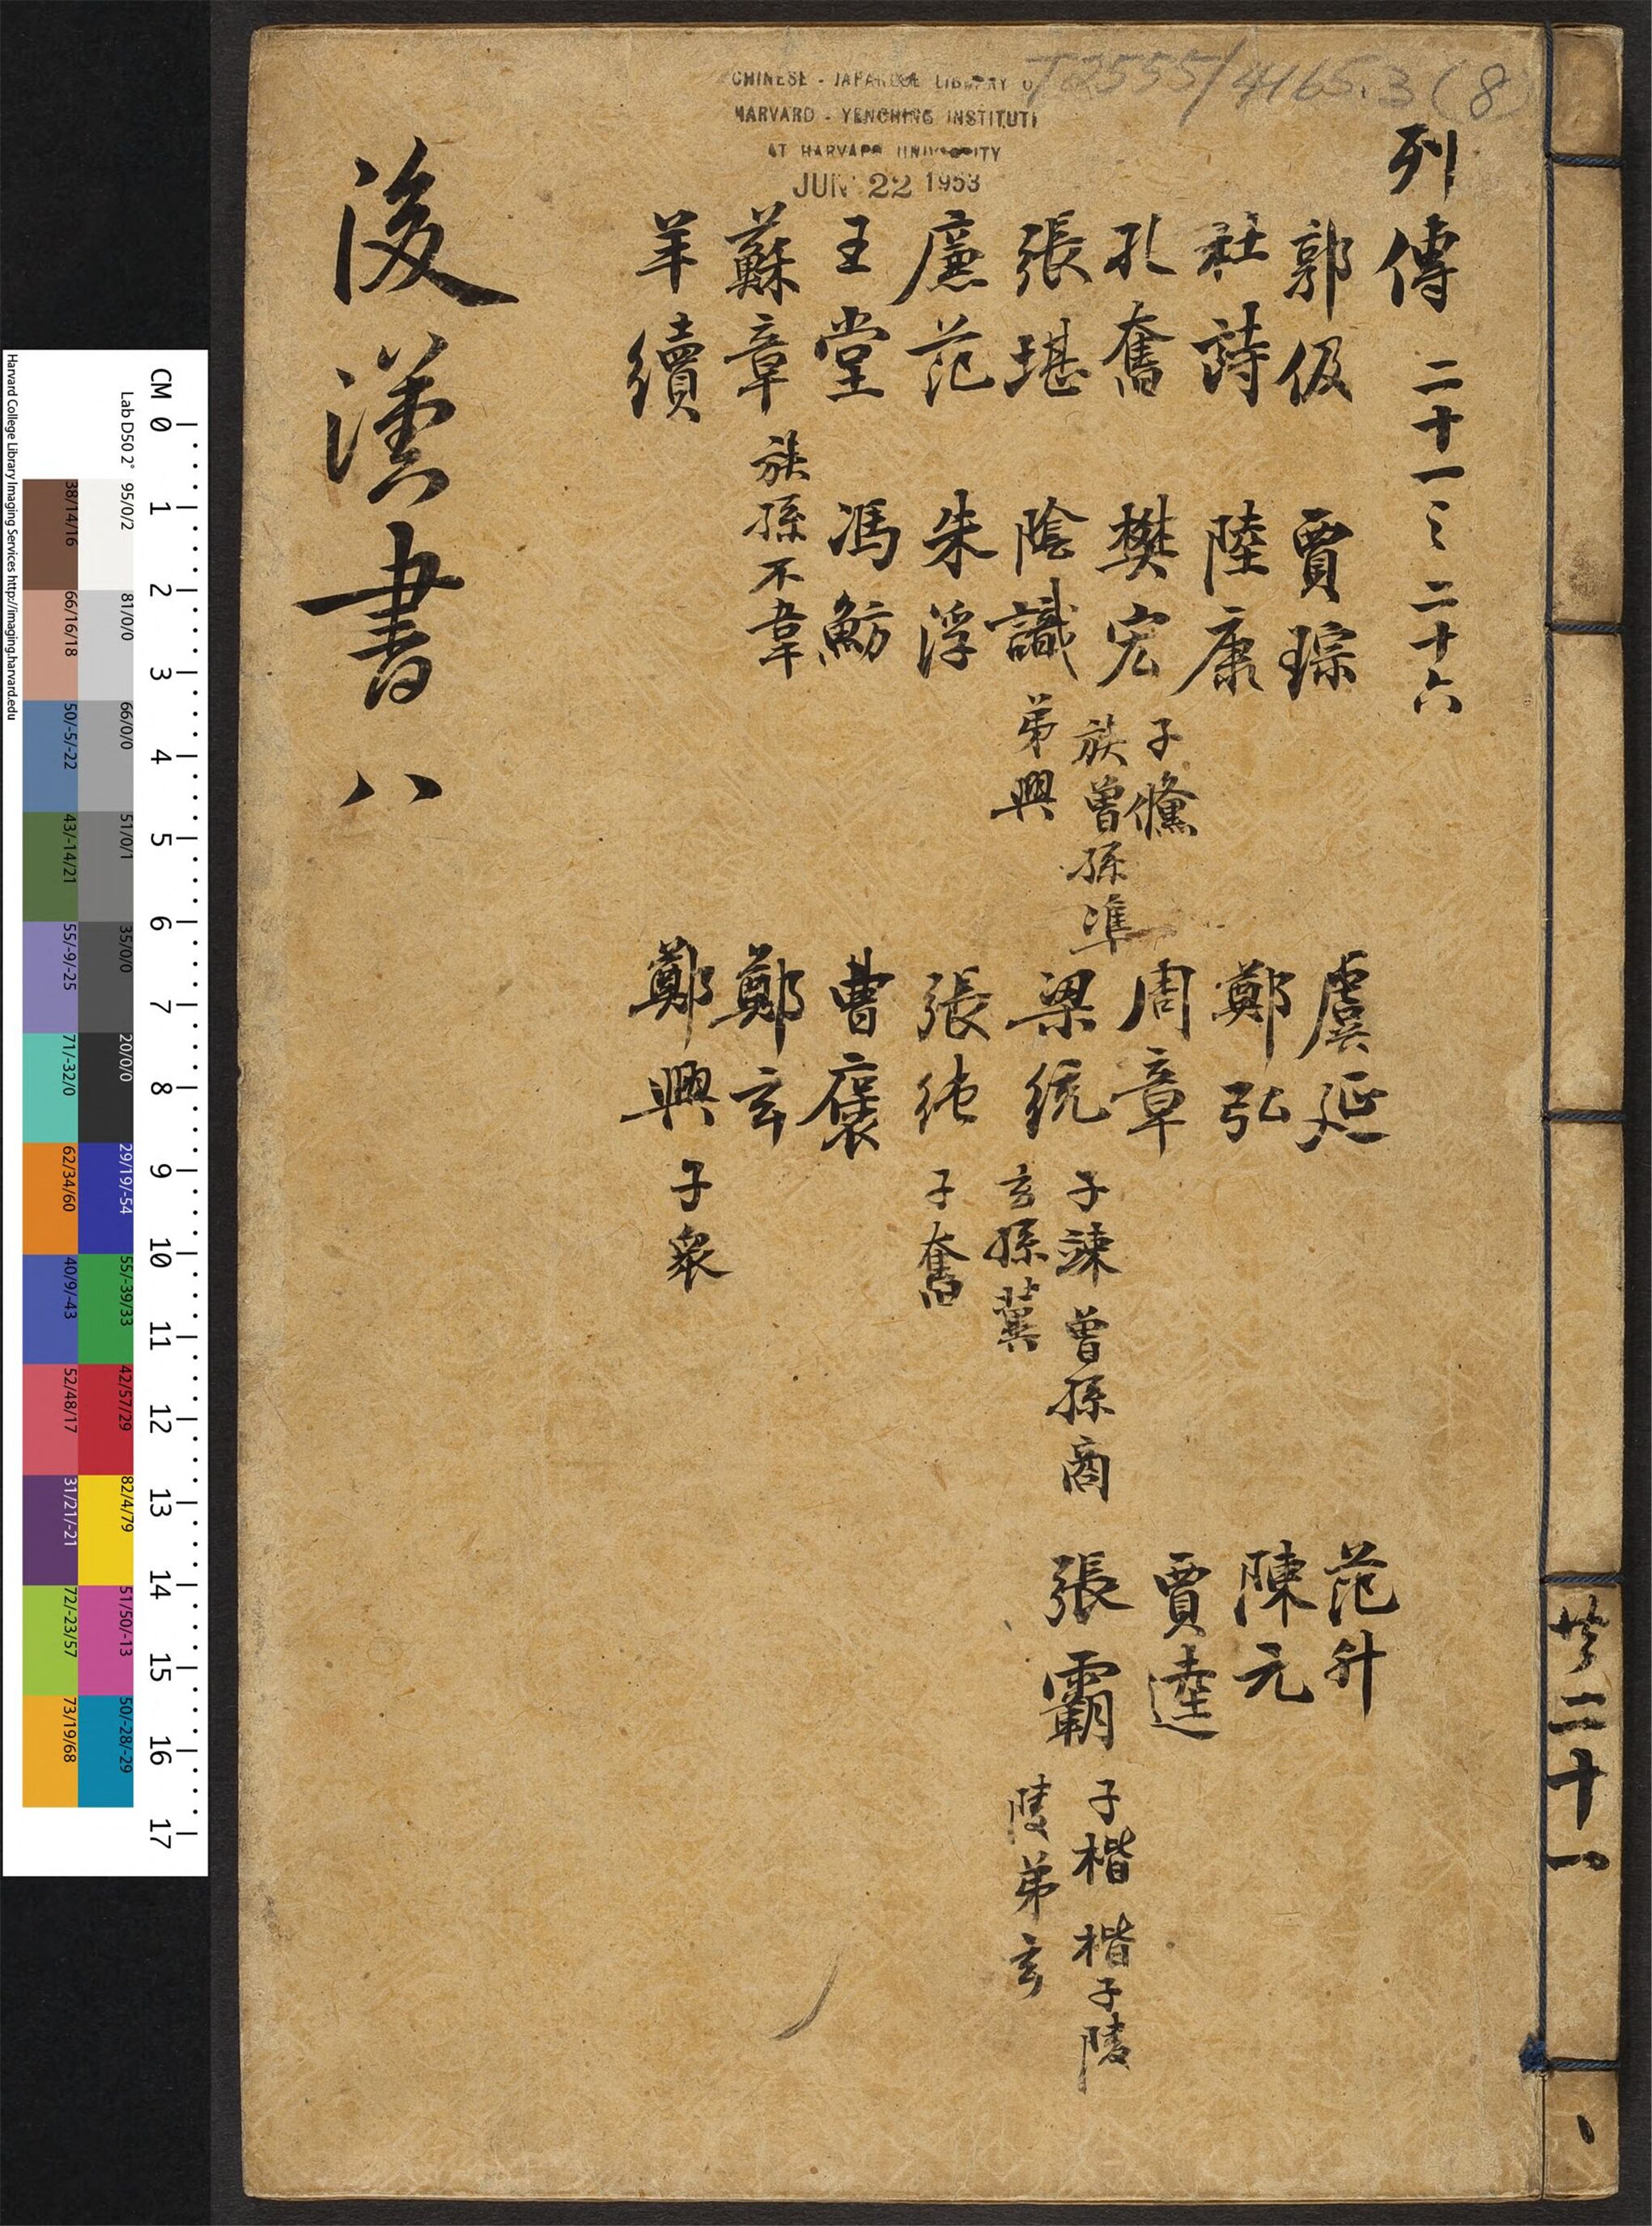 CHINESE - JAPANESE LIBRARY OF
HARVARD - YENCHING INSTITUTE
AT HARVARD UNIVERSITY
JUN 22 1953
T2555/4165.3 (8)
列傳 二十一之二十六
郭伋
杜詩
孔奮
張堪
廉范
王堂
蘇章 族孫不韋
羊續
賈琮
陸康
樊宏 子儵
族曾孫准
陰識 弟興
朱浮
馮魴
虞延
鄭弘
周章
梁統 子竦 曾孫商
玄孫冀
張純 子奮
曹褒
鄭玄
鄭興 子衆
范升
陳元
賈逵
張霸 子楷 楷子陵
陵弟玄
後漢書 八
共二十一
Harvard College Library Imaging Services http://imaging.harvard.edu
Lab D50 2°
CM 0 1 2 3 4 5 6 7 8 9 10 11 12 13 14 15 16 17
95/0/2
81/0/0
66/0/0
51/0/1
35/0/0
20/0/0
29/19/-54
55/-39/33
42/57/29
82/4/79
51/50/-13
50/-28/-29
38/14/16
66/16/18
50/-5/-22
43/-14/21
55/-9/-25
71/-32/0
62/34/60
40/9/-43
52/48/17
31/21/-21
72/-23/57
73/19/68